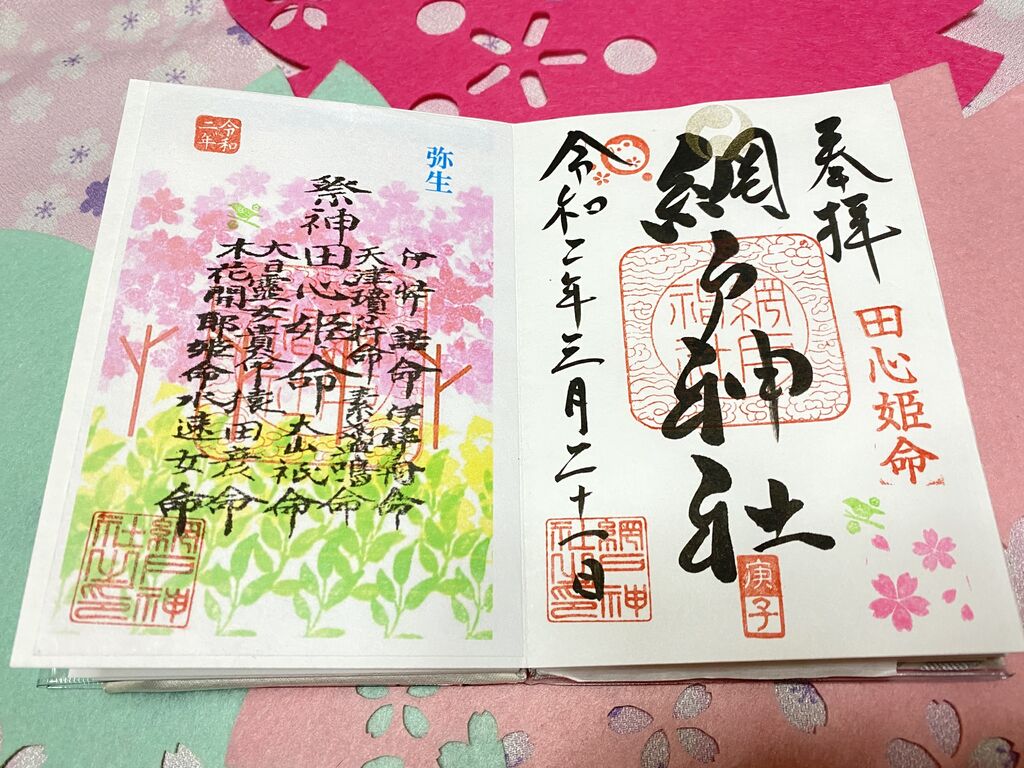 奉拝
田心姫命
網戸神社
庚子
令和二年三月二十一日
網戸神社之印
弥生
令和二年
祭神
伊弉諾命 伊弉冊命
天津瓊々杵命 素盞嗚命
田心姫命 大山祇命
大日孁女貴命 猿田彦命
木花開耶姫命 水速女命
網戸神社之印